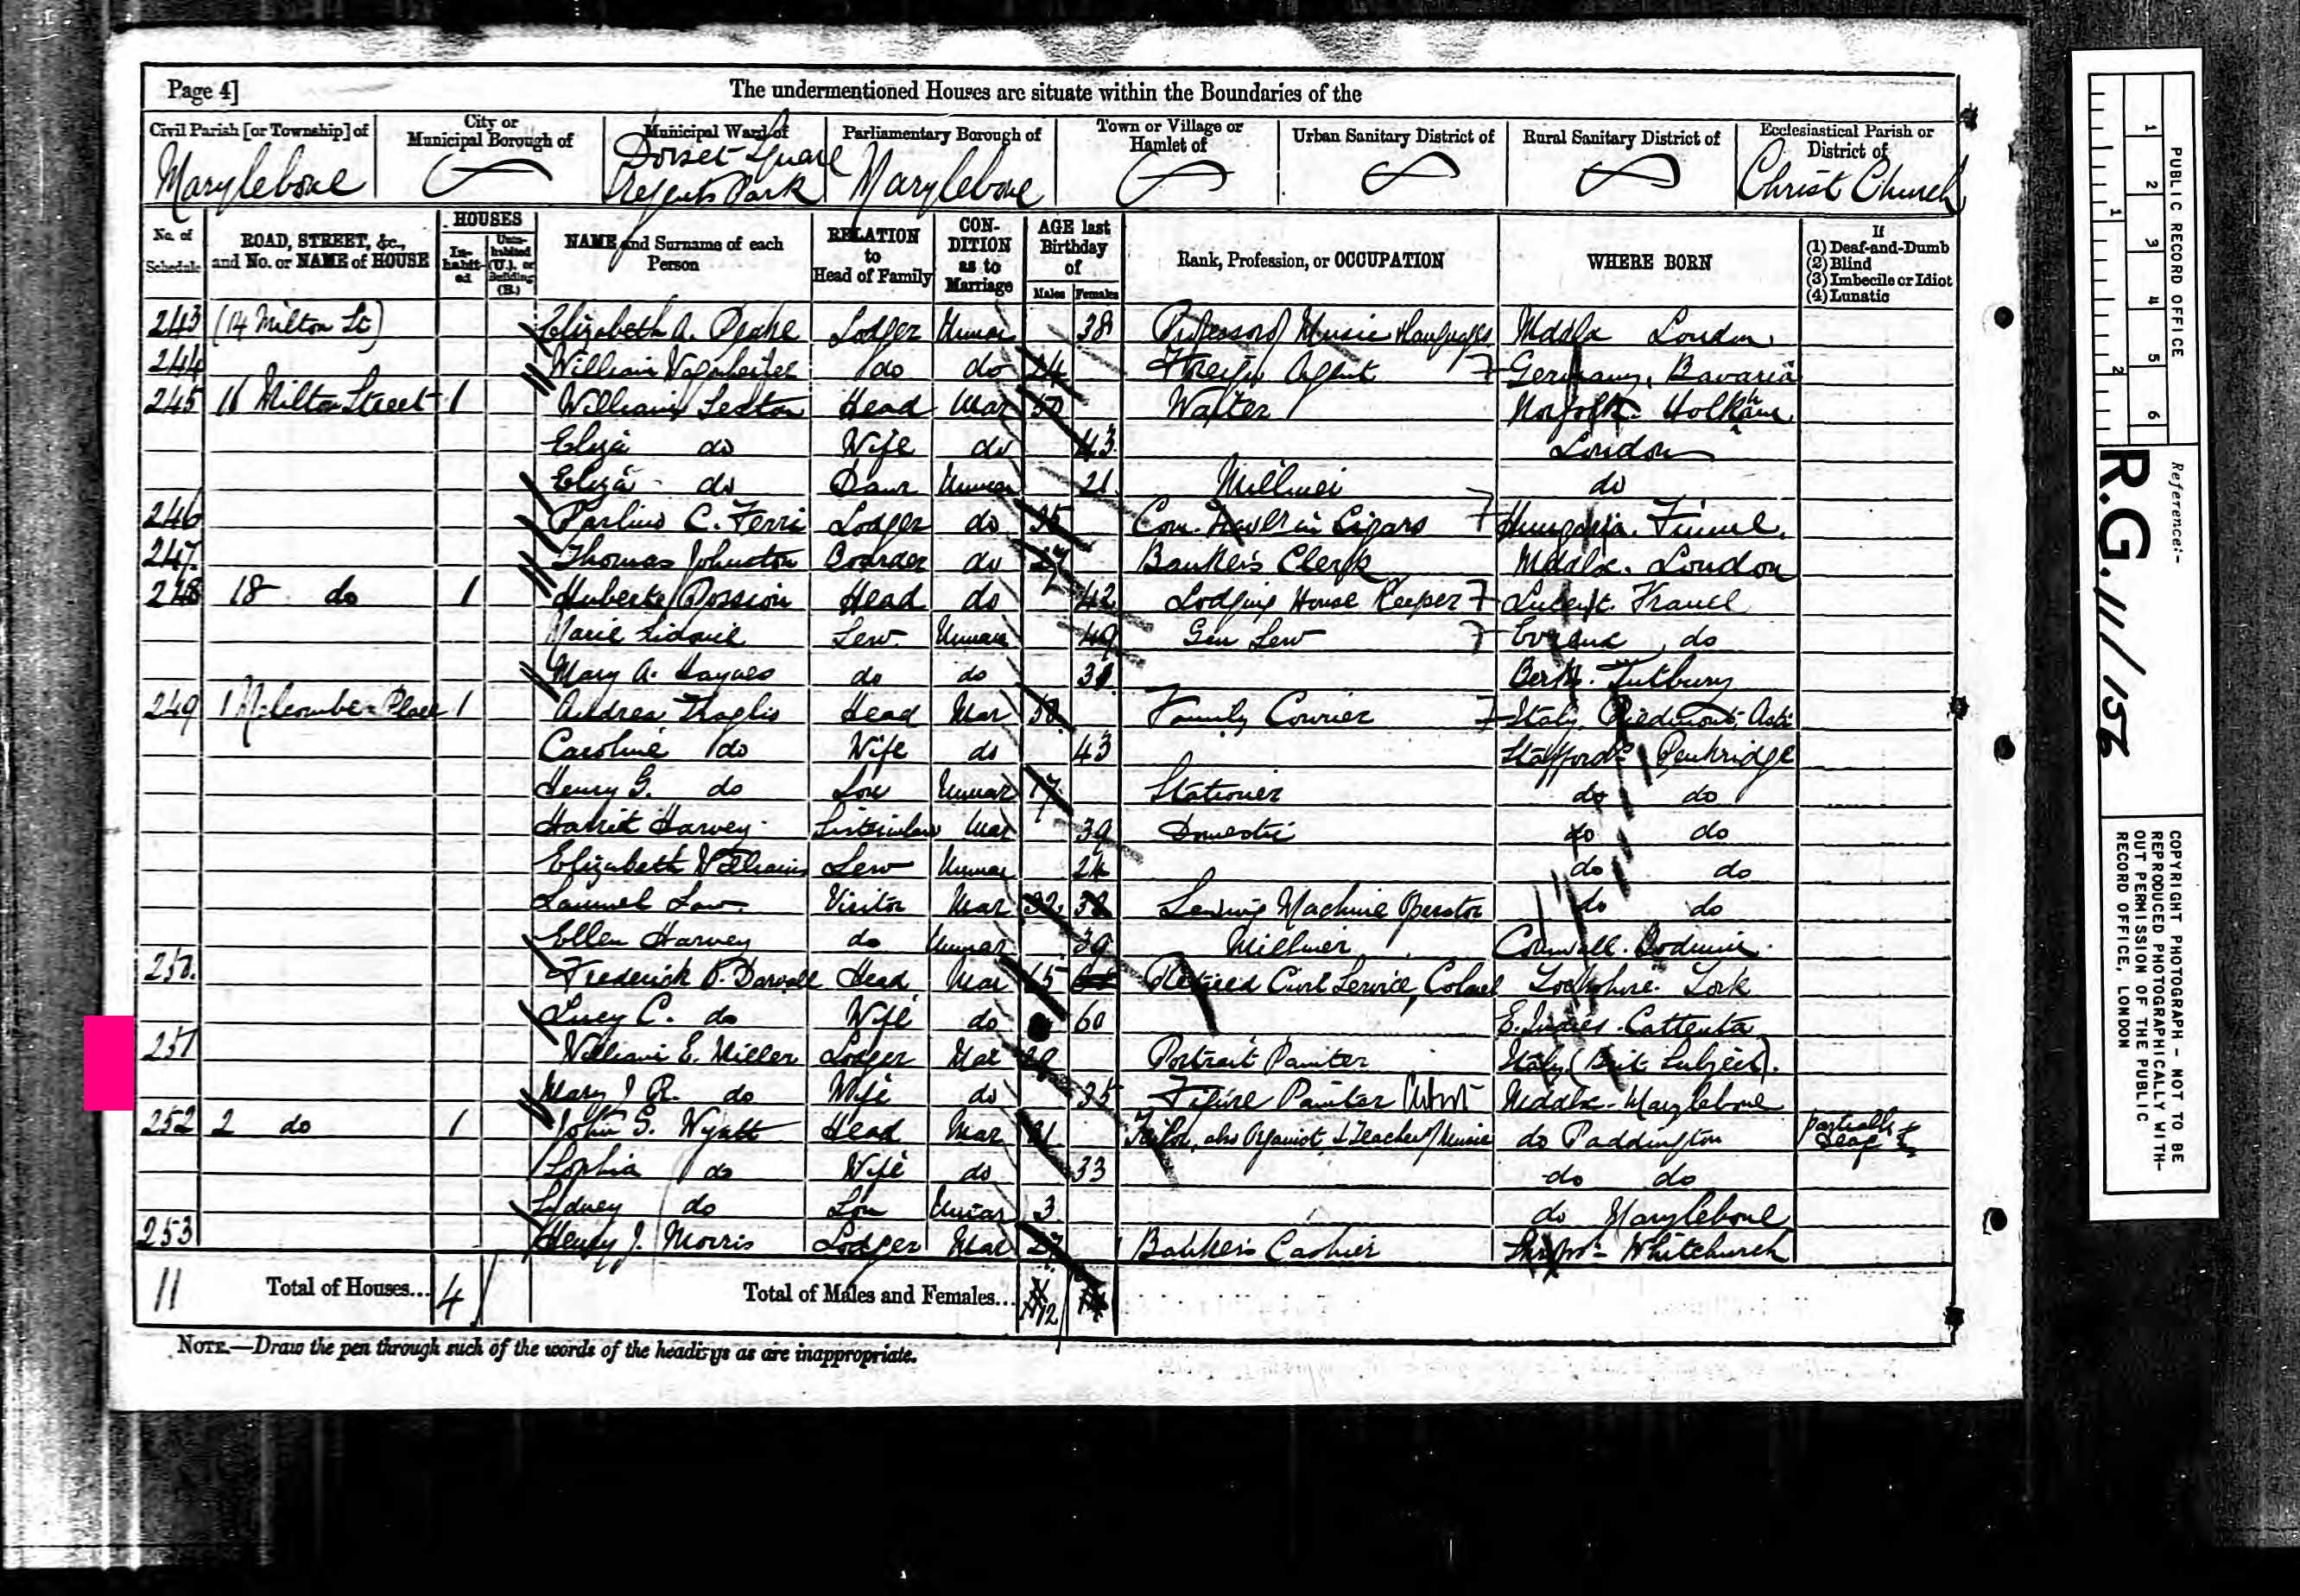 Page 4]
The undermentioned Houses are situate within the Boundaries of the
Civil Parish [or Township] of
City or Municipal Borough of
Municipal Ward of
Parliamentary Borough of
Town or Village or Hamlet of
Urban Sanitary District of
Rural Sanitary District of
Ecclesiastical Parish or District of
Marylebone
Dorset Square Regents Park
Marylebone
Christ Church
No. of Schedule
ROAD, STREET, &c., and No. or NAME of HOUSE
HOUSES
In-habit-ed
Unin-habited (U.), or Building (B.)
NAME and Surname of each Person
RELATION to Head of Family
CON-DITION as to Marriage
AGE last Birthday of
Males Females
Rank, Profession, or OCCUPATION
WHERE BORN
If
(1) Deaf-and-Dumb
(2) Blind
(3) Imbecile or Idiot
(4) Lunatic
243 (14 Milton St) Elizabeth A. Lodger Unmar 38 Professor of Music Languages Middlx London
244 William do do 24 Foreign Agent Germany, Bavaria
245 16 Milton Street 1 William Head Mar 50 Waiter Norfolk Holkham
Eliza do Wife do 43 London
Eliza do Daur Unmar 21 Milliner do
246 C. Ferri Lodger do 35 Com. in Cigars Fiume
247 Thomas Johnston Boarder do 27 Banker's Clerk Middlx. London
248 18 do 1 Head do 42 Lodging House Keeper France
Marie Serv Unmar 49 Gen Serv Evreux do
Mary A. Haynes do do Berks.
249 1 Place 1 Andrea Head Mar 58 Family Courier Italy, Piedmont, Asti
Caroline do Wife do 43 Staffords Penkridge
Henry G. do Son Unmar 17 Stationer do do
Harriet Harvey Sister in law Mar 39 Domestic do do
Elizabeth Williams Serv Unmar 24 do do
Samuel Law Visitor Mar 32 Sewing Machine Operator do do
Ellen Harvey do Unmar 39 Milliner Cornwall. Bodmin
250 Frederick Darvall Head Mar 65 Retired Civil Service, Yorkshire. York
Lucy C. do Wife do 60 E. Indies. Calcutta
251 William E. Miller Lodger Mar 29 Portrait Painter Italy (Brit. Subject).
Mary J. R. do Wife do 35 Figure Painter Artist Middlx. Marylebone
252 2 do 1 John S. Wyatt Head Mar 31 Tailor, also Organist & Teacher of Music do Paddington partially deaf
Sophia do Wife do 33 do do
Sydney do Son Unmar 3 do Marylebone
253 Henry J. Morris Lodger Mar 27 Banker's Cashier Shrops Whitchurch
11 Total of Houses... 4 Total of Males and Females... 12
NOTE.—Draw the pen through such of the words of the headings as are inappropriate.
PUBLIC RECORD OFFICE
1 2 3 4 5 6
1 2
Reference:-
R.G. 11/156
COPYRIGHT PHOTOGRAPH - NOT TO BE
REPRODUCED PHOTOGRAPHICALLY WITH-
OUT PERMISSION OF THE PUBLIC
RECORD OFFICE, LONDON